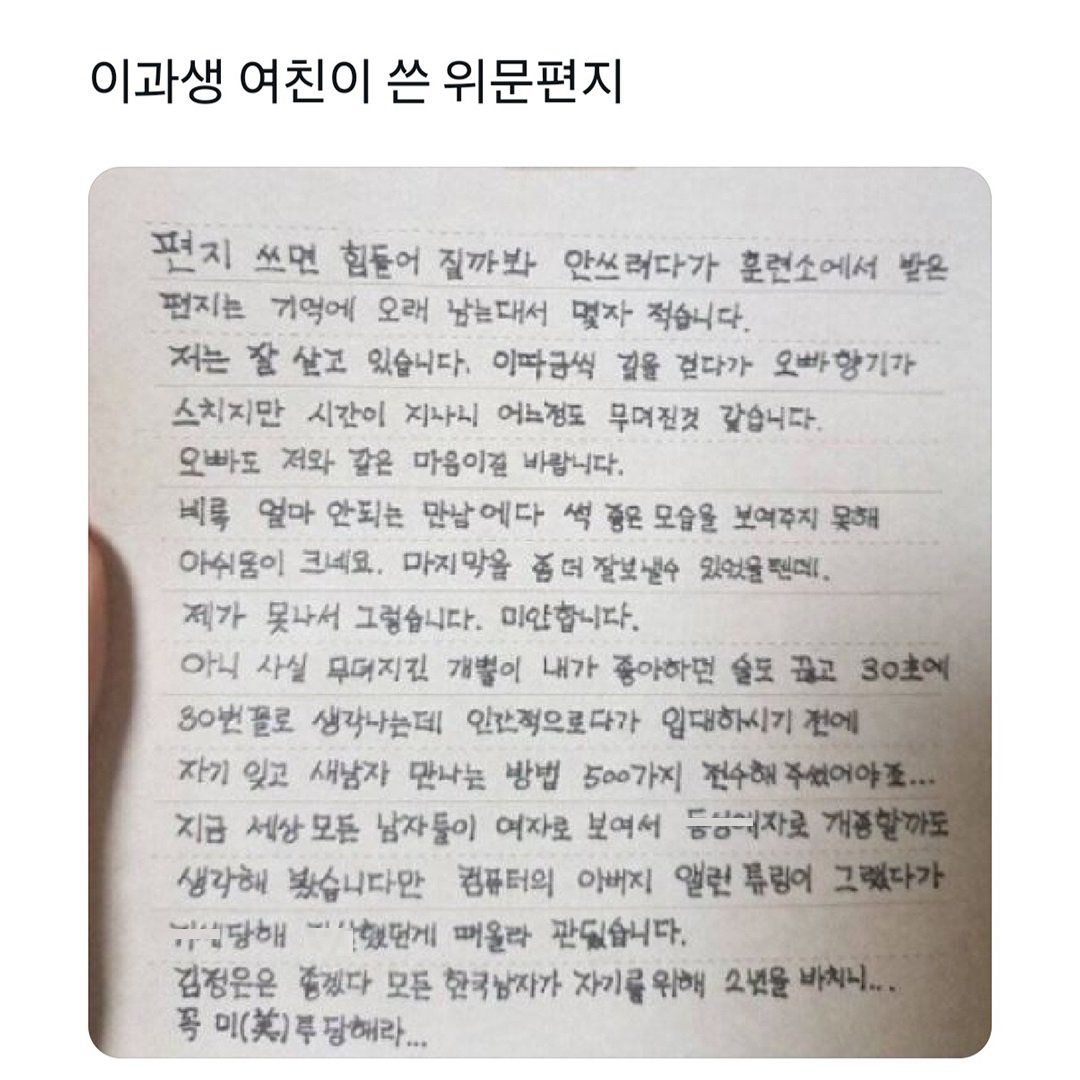 이과생 여친이 쓴 위문편지
편지 쓰면 힘들어 질까봐 안쓰려다가 훈련소에서 받은
편지는 기억에 오래 남는대서 몇자 적습니다.
저는 잘 살고 있습니다. 이따금씩 길을 걷다가 오빠향기가
스치지만 시간이 지나니 어느정도 무뎌진것 같습니다.
오빠도 저와 같은 마음이길 바랍니다.
비록 얼마 안되는 만남에다 썩 좋은 모습을 보여주지 못해
아쉬움이 크네요. 마지막을 좀 더 잘보낼수 있었을텐데.
제가 못나서 그렇습니다. 미안합니다.
아니 사실 무뎌지긴 개뿔이 내가 좋아하던 술도 끊고 30초에
30번꼴로 생각나는데 인간적으로다가 입대하시기 전에
자기 잊고 새남자 만나는 방법 500가지 전수해 주셨어야죠...
지금 세상 모든 남자들이 여자로 보여서 동성애자로 개종할까도
생각해 봤습니다만 컴퓨터의 아버지 앨런 튜링이 그랬다가
당해 했던게 떠올라 관뒀습니다.
김정은은 좋겠다 모든 한국남자가 자기를 위해 2년을 바치니...
꼭 미(美)루 당해라...